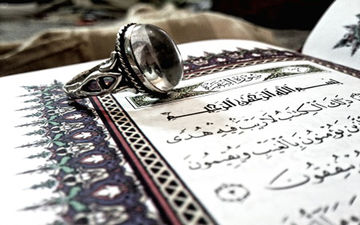 بِسْمِ اللَّهِ الرَّحْمَٰنِ الرَّحِيمِ
ذَٰلِكَ الْكِتَٰبُ لَا رَيْبَ فِيهِ هُدًى
يُؤْمِنُونَ بِالْغَيْبِ وَيُقِيمُونَ
يُنفِقُونَ